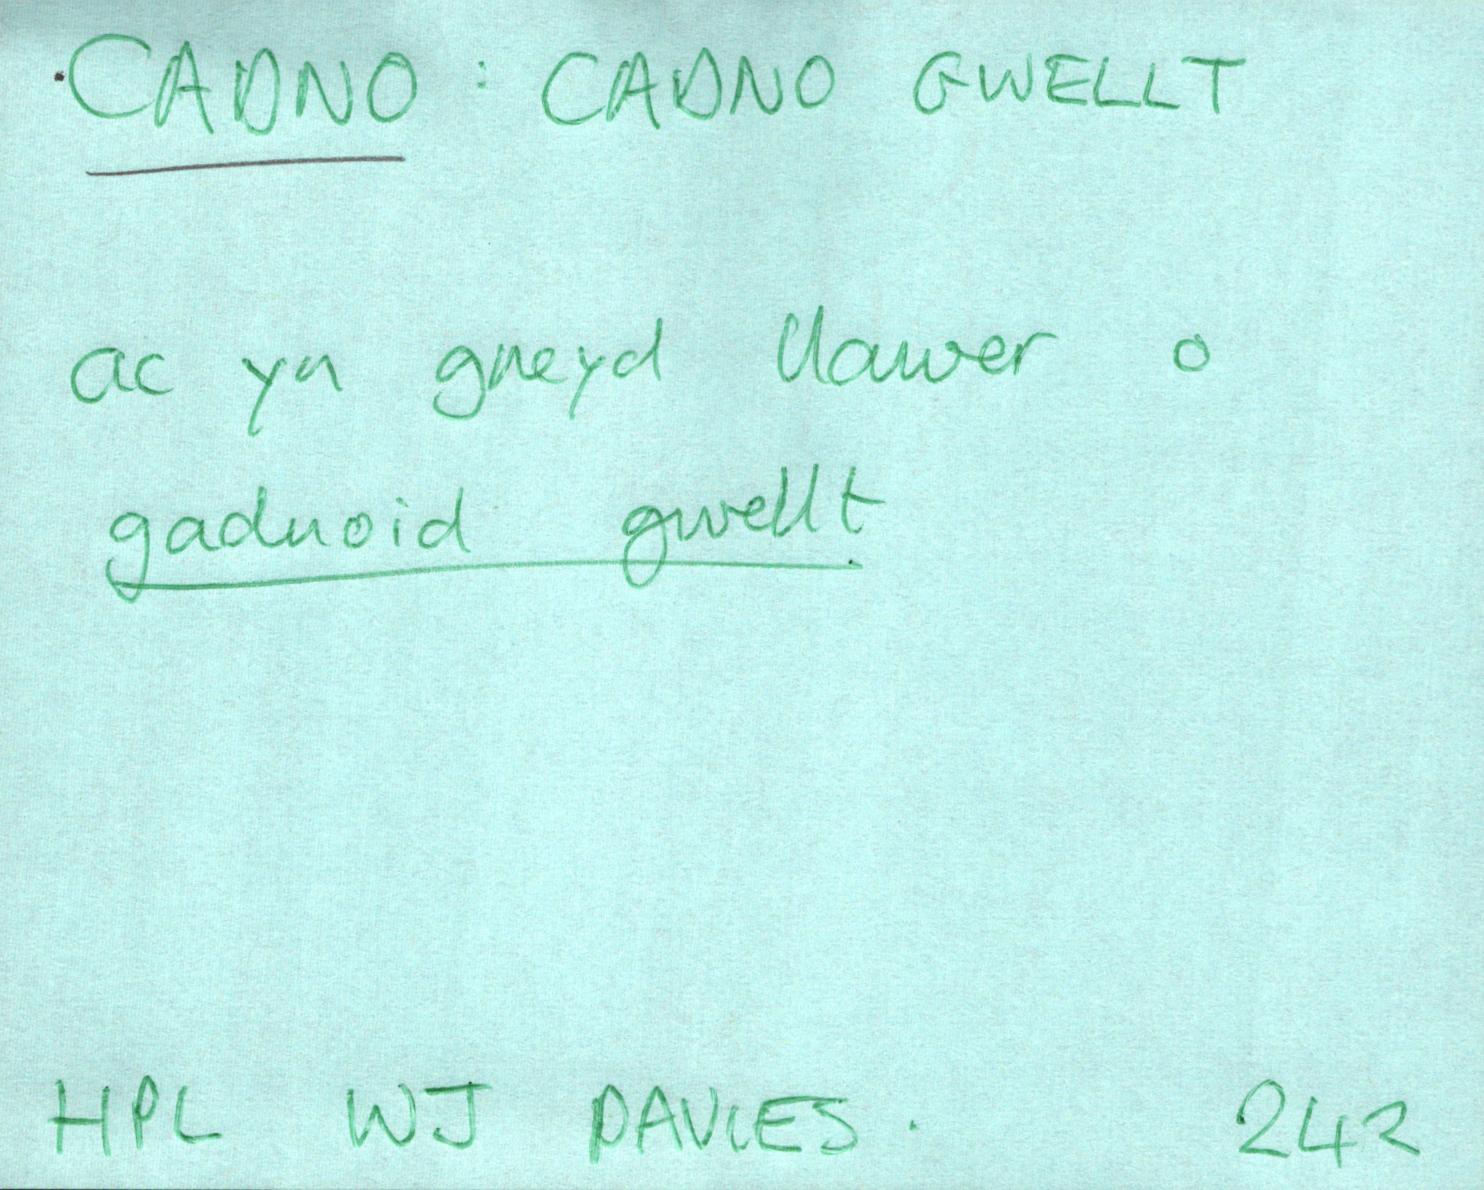 CADNO : CADNO GWELLT
ac yn gneyd llawer o
gadnoid gwellt
HPL WJ DAVIES. 242